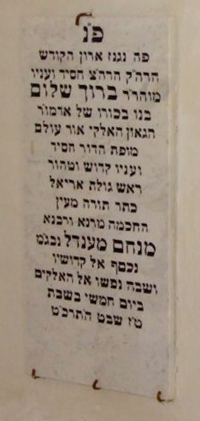 פ"נ
פה נגנז ארון הקודש
הרה"ק הרה"צ חסיד ועניו
מוהר"ר ברוך שלום
בנו בכורו של אדמו"ר
הגאון האלקי אור עולם
מופת הדור חסיד
ועניו קדוש וטהור
ראש גולת אריאל
כתר תורה מעין
החכמה מרנא ורבנא
מנחם מענדל נבג"מ
נכסף אל קדושיו
ושבה נפשו אל האלקים
ביום חמשי בשבת
ט"ז שבט ה'תרכ"ט